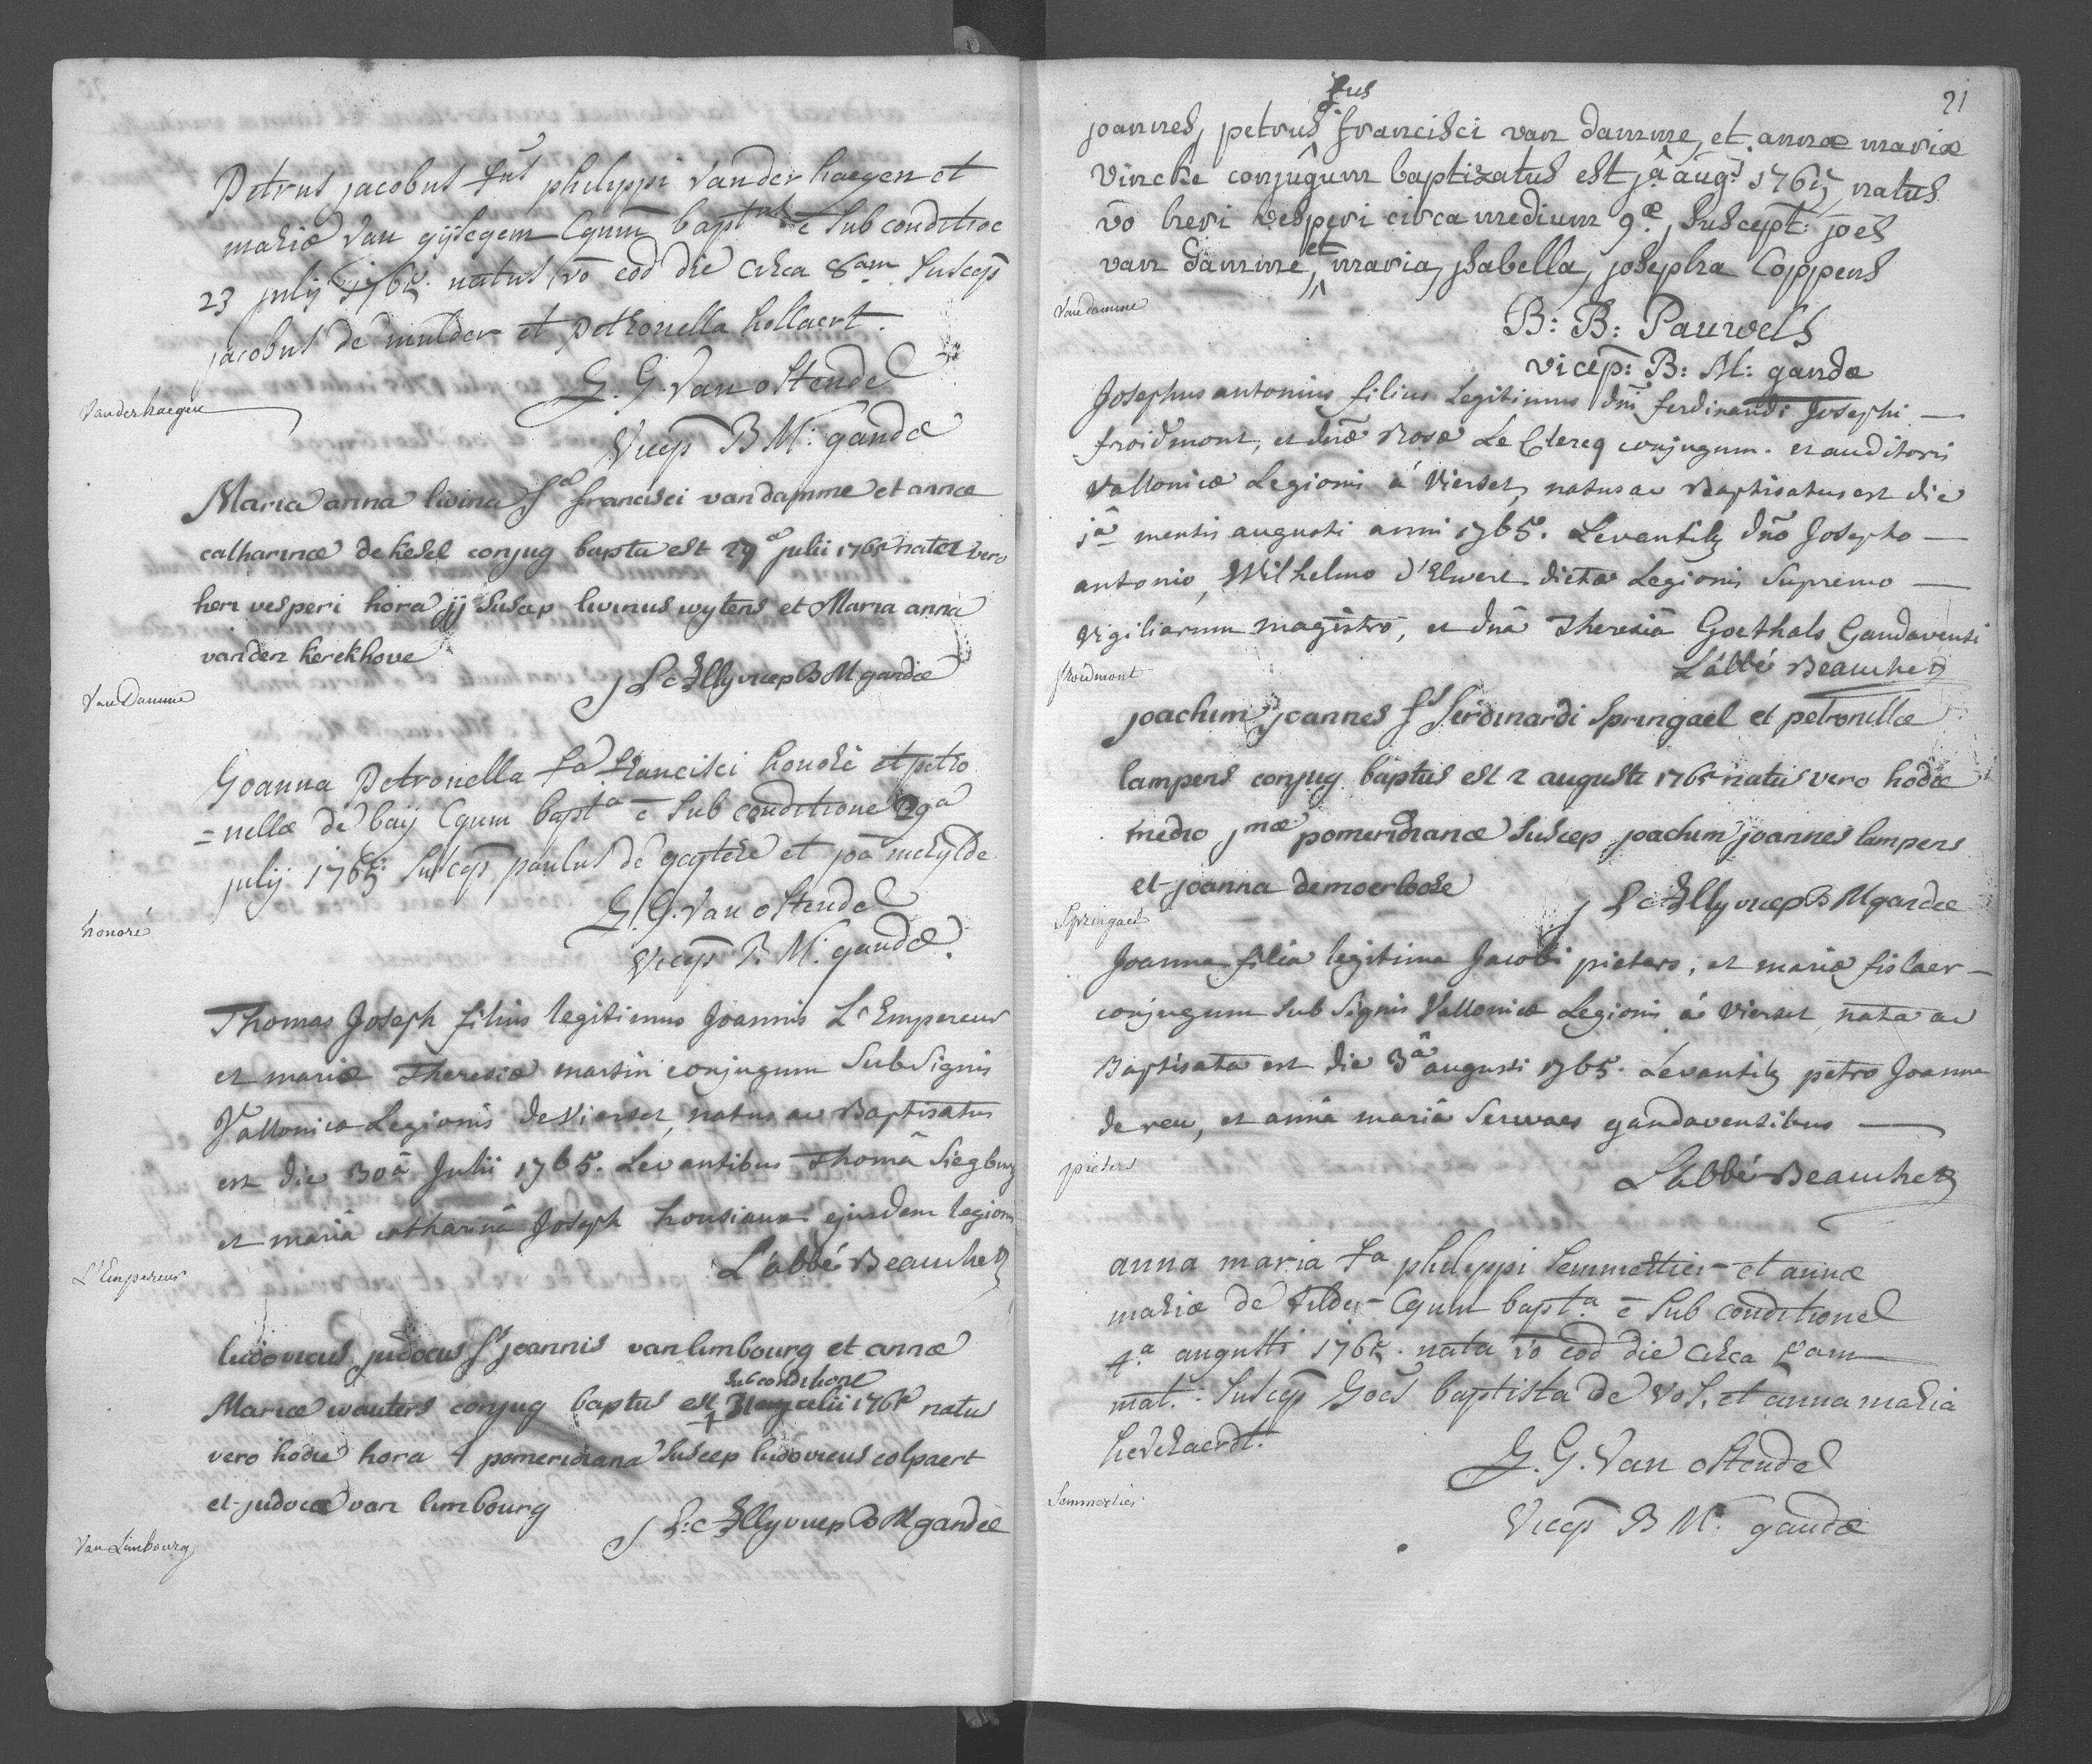 Petrus jacobus fus philippi Vander haegen et
mariæ Van gijsegem Cgum baptus e sub conditioe
23 julij 1765 natus vo eod die circa 8am suscep
jacobus de mulder et petronella hollaert.
G. G. Van Ostende
Vicep B M: gandæ
Vanderhaegen
Maria anna livina fa francisci vandamme et annæ
catharinæ dekesel conjug bapta est 29a julii 1765 nata vero
heri vesperi hora jj suscep livinus wytens et Maria anna
vanden kerckhove
vicep B M gandæ
Van Damme
Joanna Petronella fa francisci honoré et petro
=nellæ de baij Cgum bapta e sub conditione 29a
julij 1765 suscep paulus de et joa
G. G. Van Ostende
Vicep B. M: gandæ.
honoré
Thomas Joseph filius legitimus Joannis L'Empereur
et mariæ Theresiæ martin conjugum sub signis
Vallonicæ Legionis de Vierset, natus ac Baptisatus
est die 30â Julii 1765. Levantibus Thomâ Siegburg
et mariâ catharinâ Joseph housiaux ejusdem legionis
L'abbé Beauchez
L'Empereur
ludovicus judocus fs joannis vanlimbourg et annæ
sub conditione
Mariæ wauters conjug baptus est 31 julii 1765 natus
vero hodie hora 4 pomeridiana suscep ludovicus colpaert
et judoca van limbourg
vicep B M gandæ
Van Limbourg
21
fus
joannes, petrus francisci van damme, et annæ mariæ
Vincke conjugûm baptizatus est jâ aug: 1765, natus
vo heri vesperi circa medium 9æ, suscept: joes
van damme, et maria, jsabella, josepha Coppens
B: B: Pauwels
vicep: B: M: gandæ
Van damme
Josephus antonius filius Legitimus dni ferdinandi Josephi —
froidmont, et dnæ Rosæ Le Clercq conjugum. et auditoris
Vallonicæ Legionis à Vierset, natus ac Baptisatus est die
jâ mensis augusti anni 1765. Levantibz dno Josepho —
antonio, Wilhelmo d'Elwert dictæ Legionis Supremo —
Vigiliarum magistro, et dnâ Theresiâ Goethals Gandavensi
L'abbé Beauchez
froidmont
joachim joannes fs ferdinandi Springael et petronillæ
lampens conjug baptus est 2 augusti 1765 natus vero hodie
medio jmæ pomeridianæ suscep joachim joannes lampens
et joanna demoerloose
vicep B M gandæ
Springael
Joanna filia legitima Jacobi pieters, et mariæ fislaer —
conjugum sub signis Vallonicæ Legionis à Vierset nata ac
Baptisata est die 3â augusti 1765. Levantibz petro Joanne
de reu, et annâ mariâ Servaes gandavensibus —
L'abbé Beauchez
pieters
anna maria fa philippi Semmertier et annæ
mariæ de Vilder Cgum bapta e sub conditione
4.a augusti 1765. nata vo eod die circa 5am
mat: suscep Joes baptista de Vos, et anna maria
G. G. Van Ostende
Vicep B M: gandæ
Semmertier